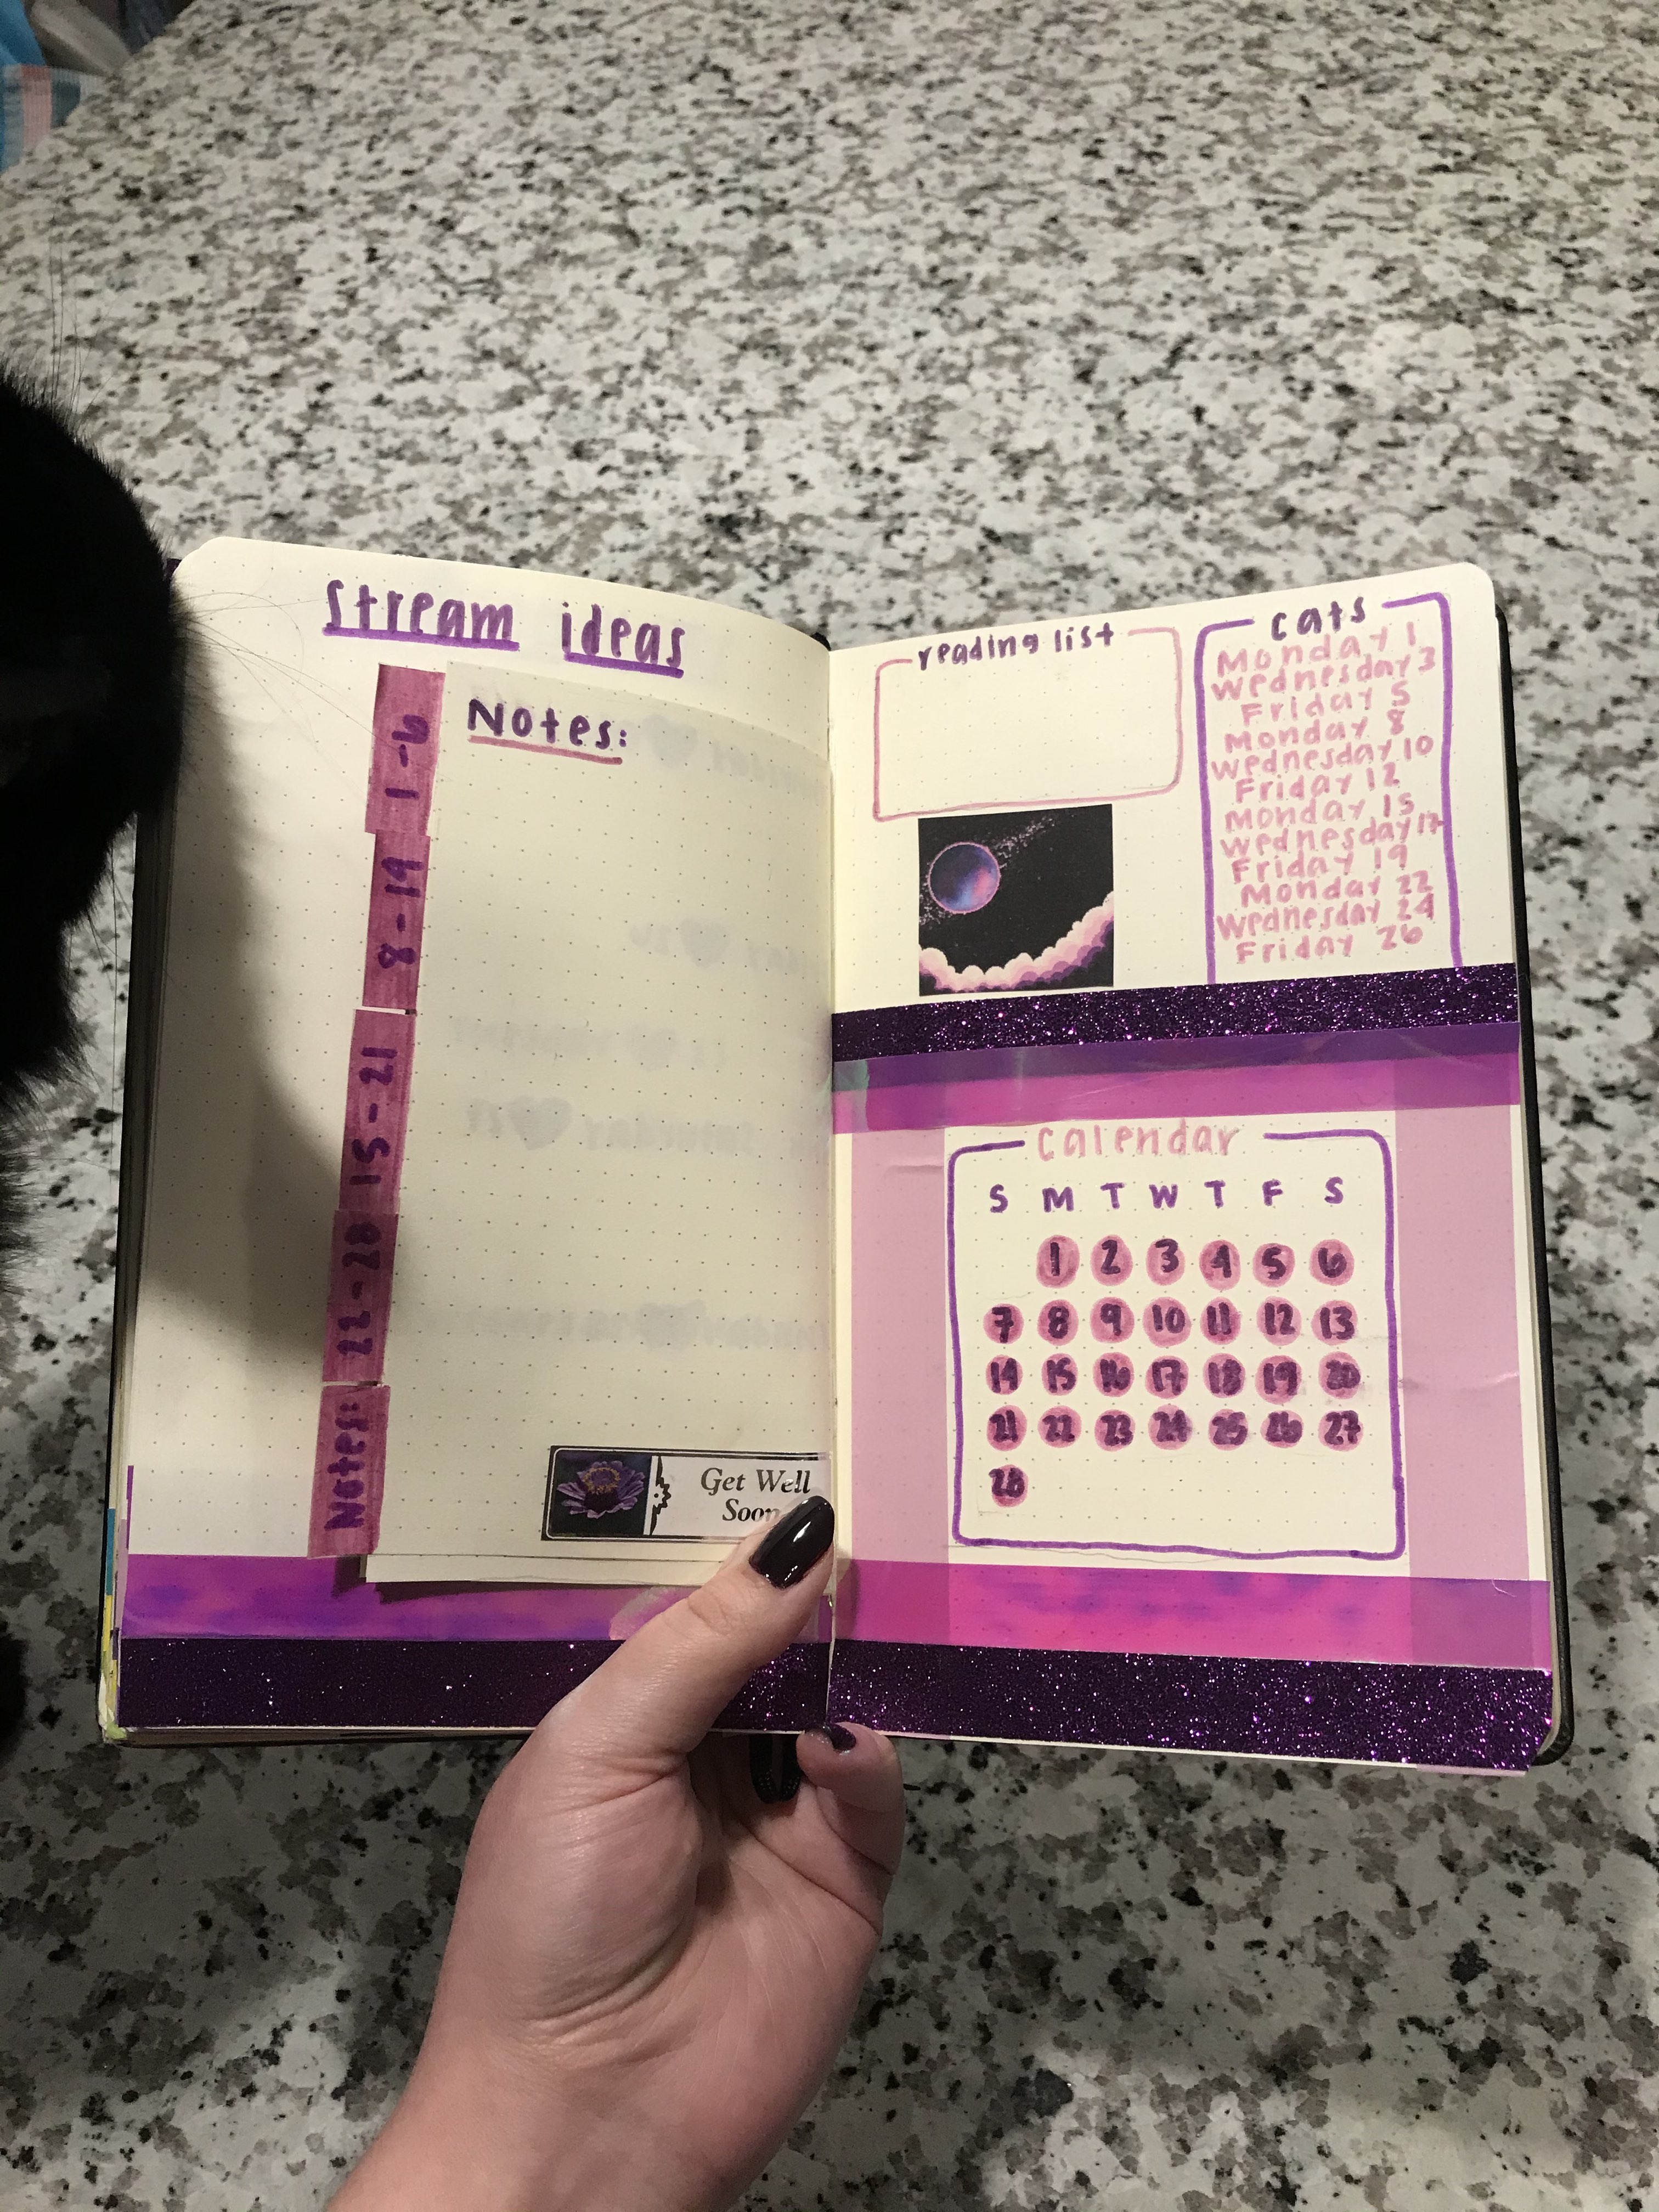 Stream ideas
Notes:
1-6
8-19
15-21
22-28
Notes:
Get Well
Soon
reading list
cats
Monday 1
Wednesday 3
Friday 5
Monday 8
Wednesday 10
Friday 12
Monday 15
Wednesday 17
Friday 19
Monday 22
Wednesday 24
Friday 26
Calendar
S M T W T F S
1 2 3 4 5 6
7 8 9 10 11 12 13
14 15 16 17 18 19 20
21 22 23 24 25 26 27
28